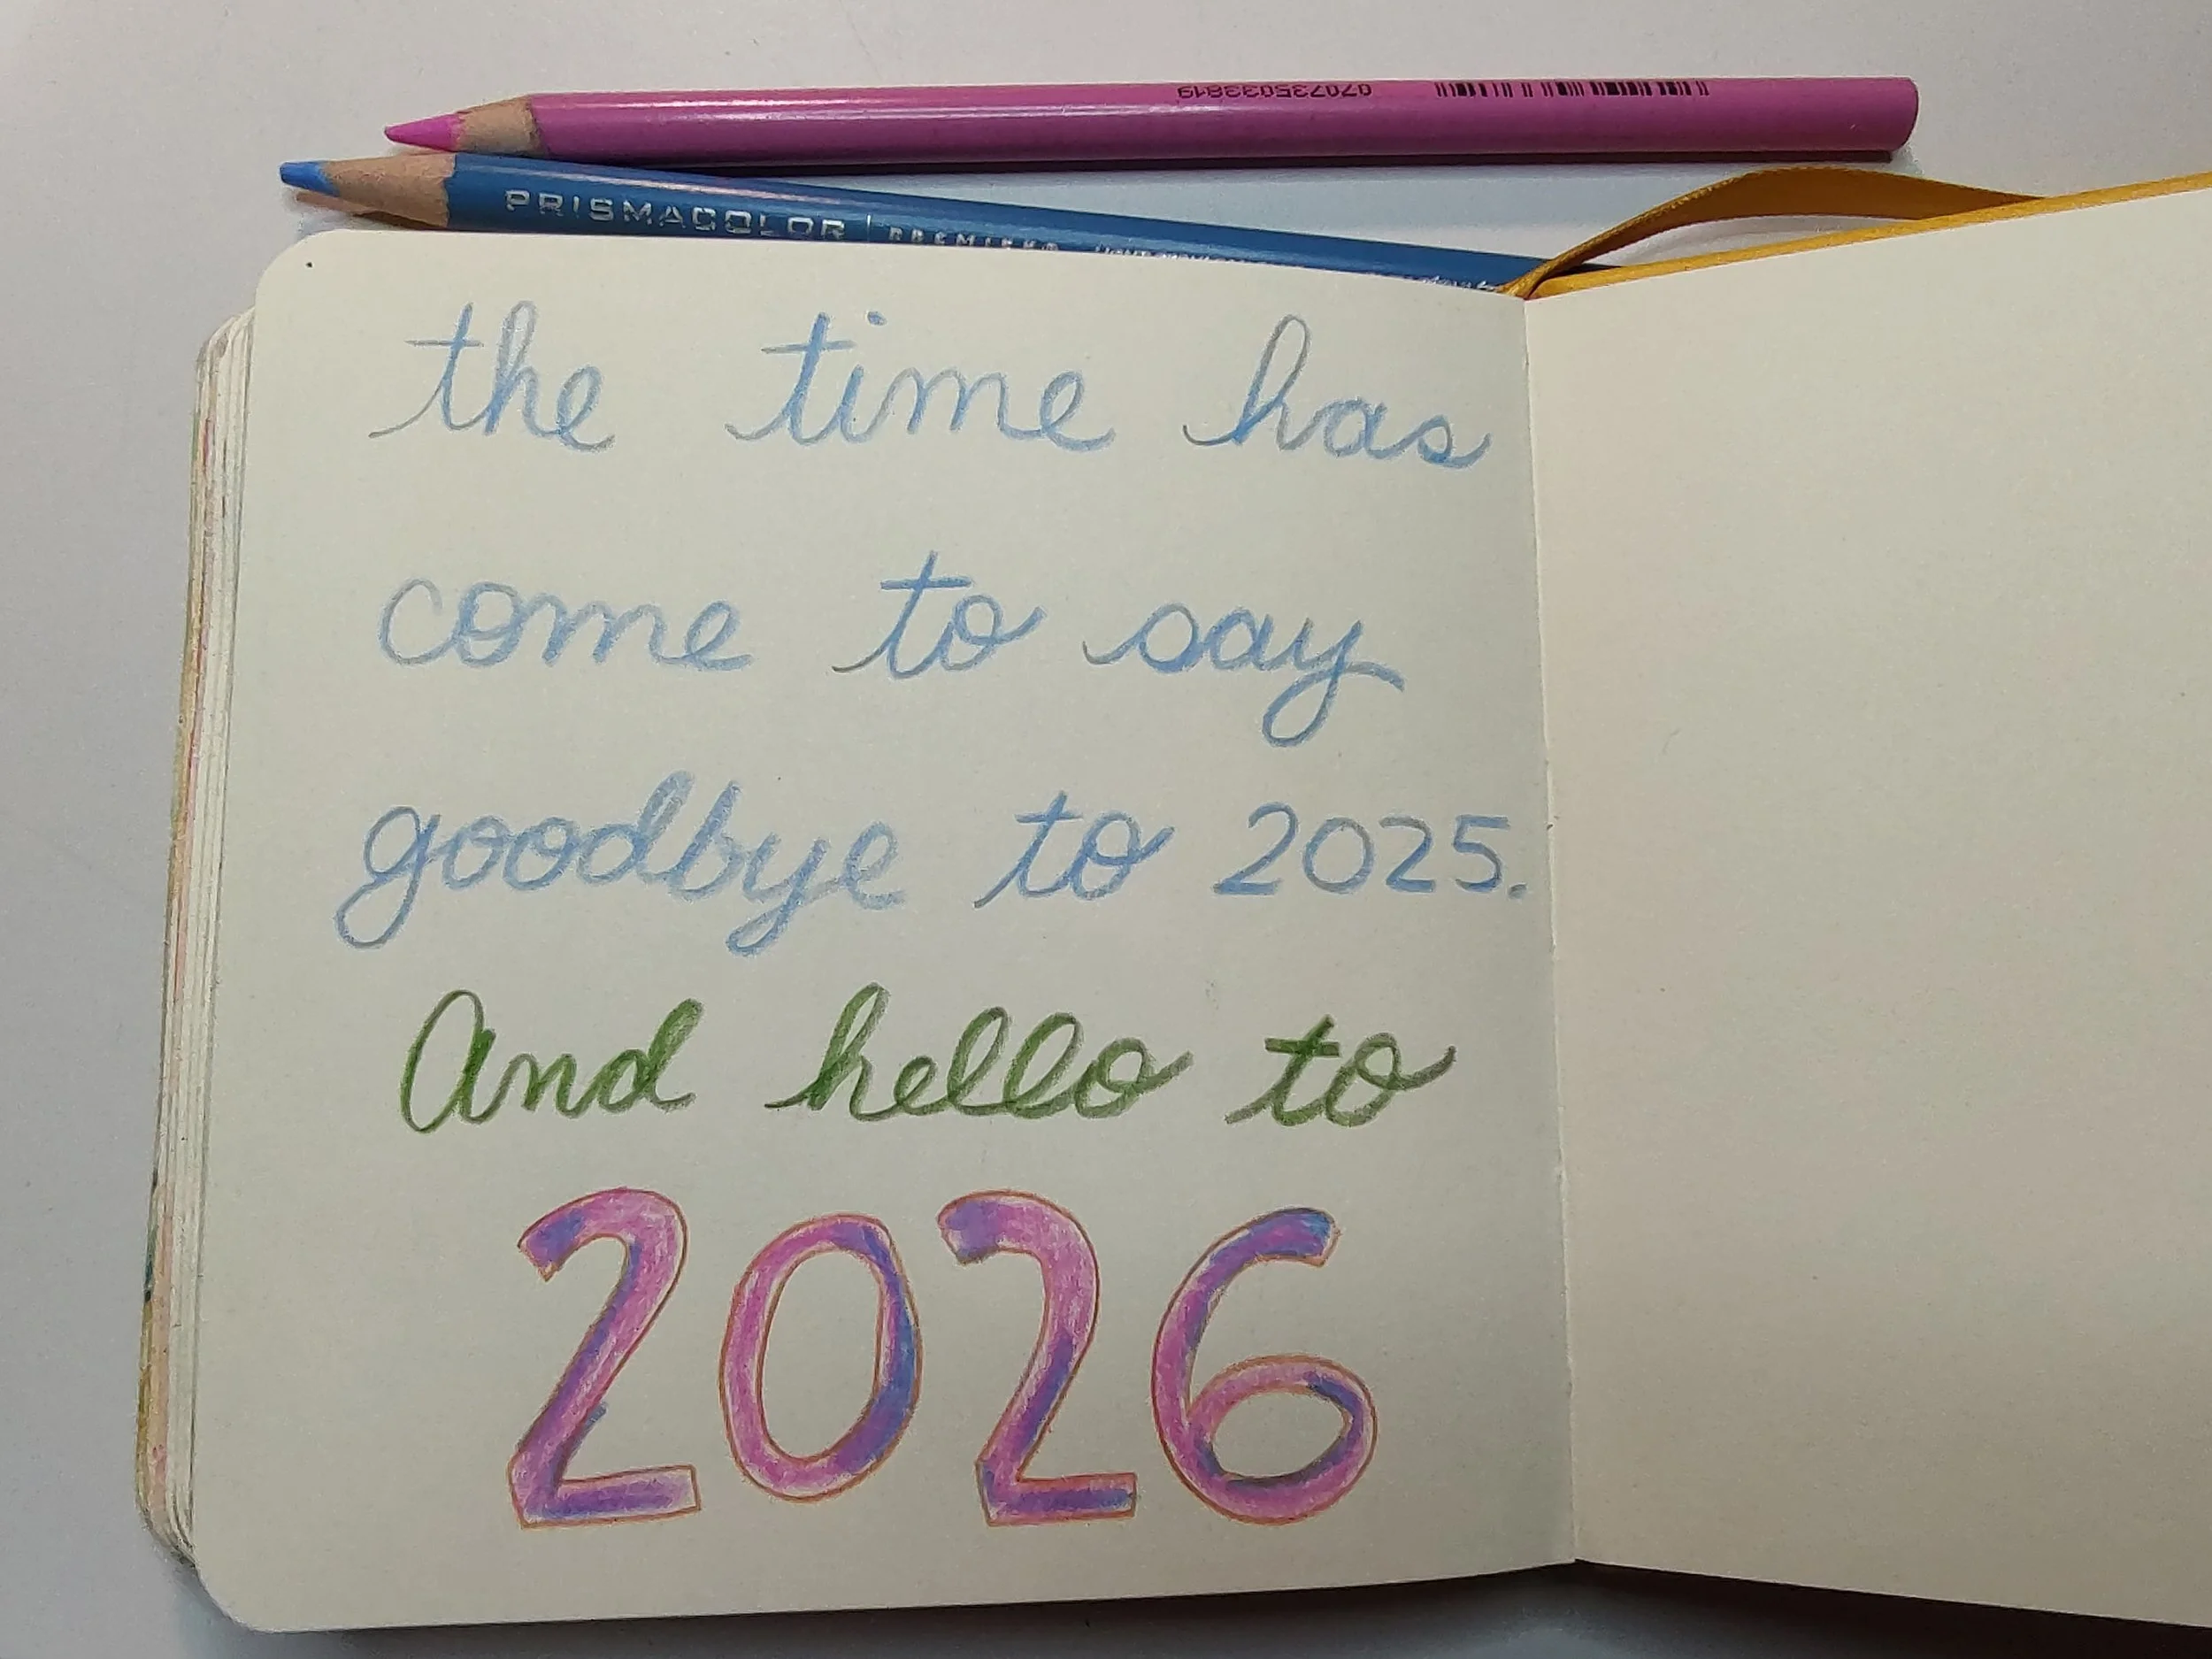 070735033819
PRISMACOLOR | PREMIER
the time has
come to say
goodbye to 2025.
And hello to
2026